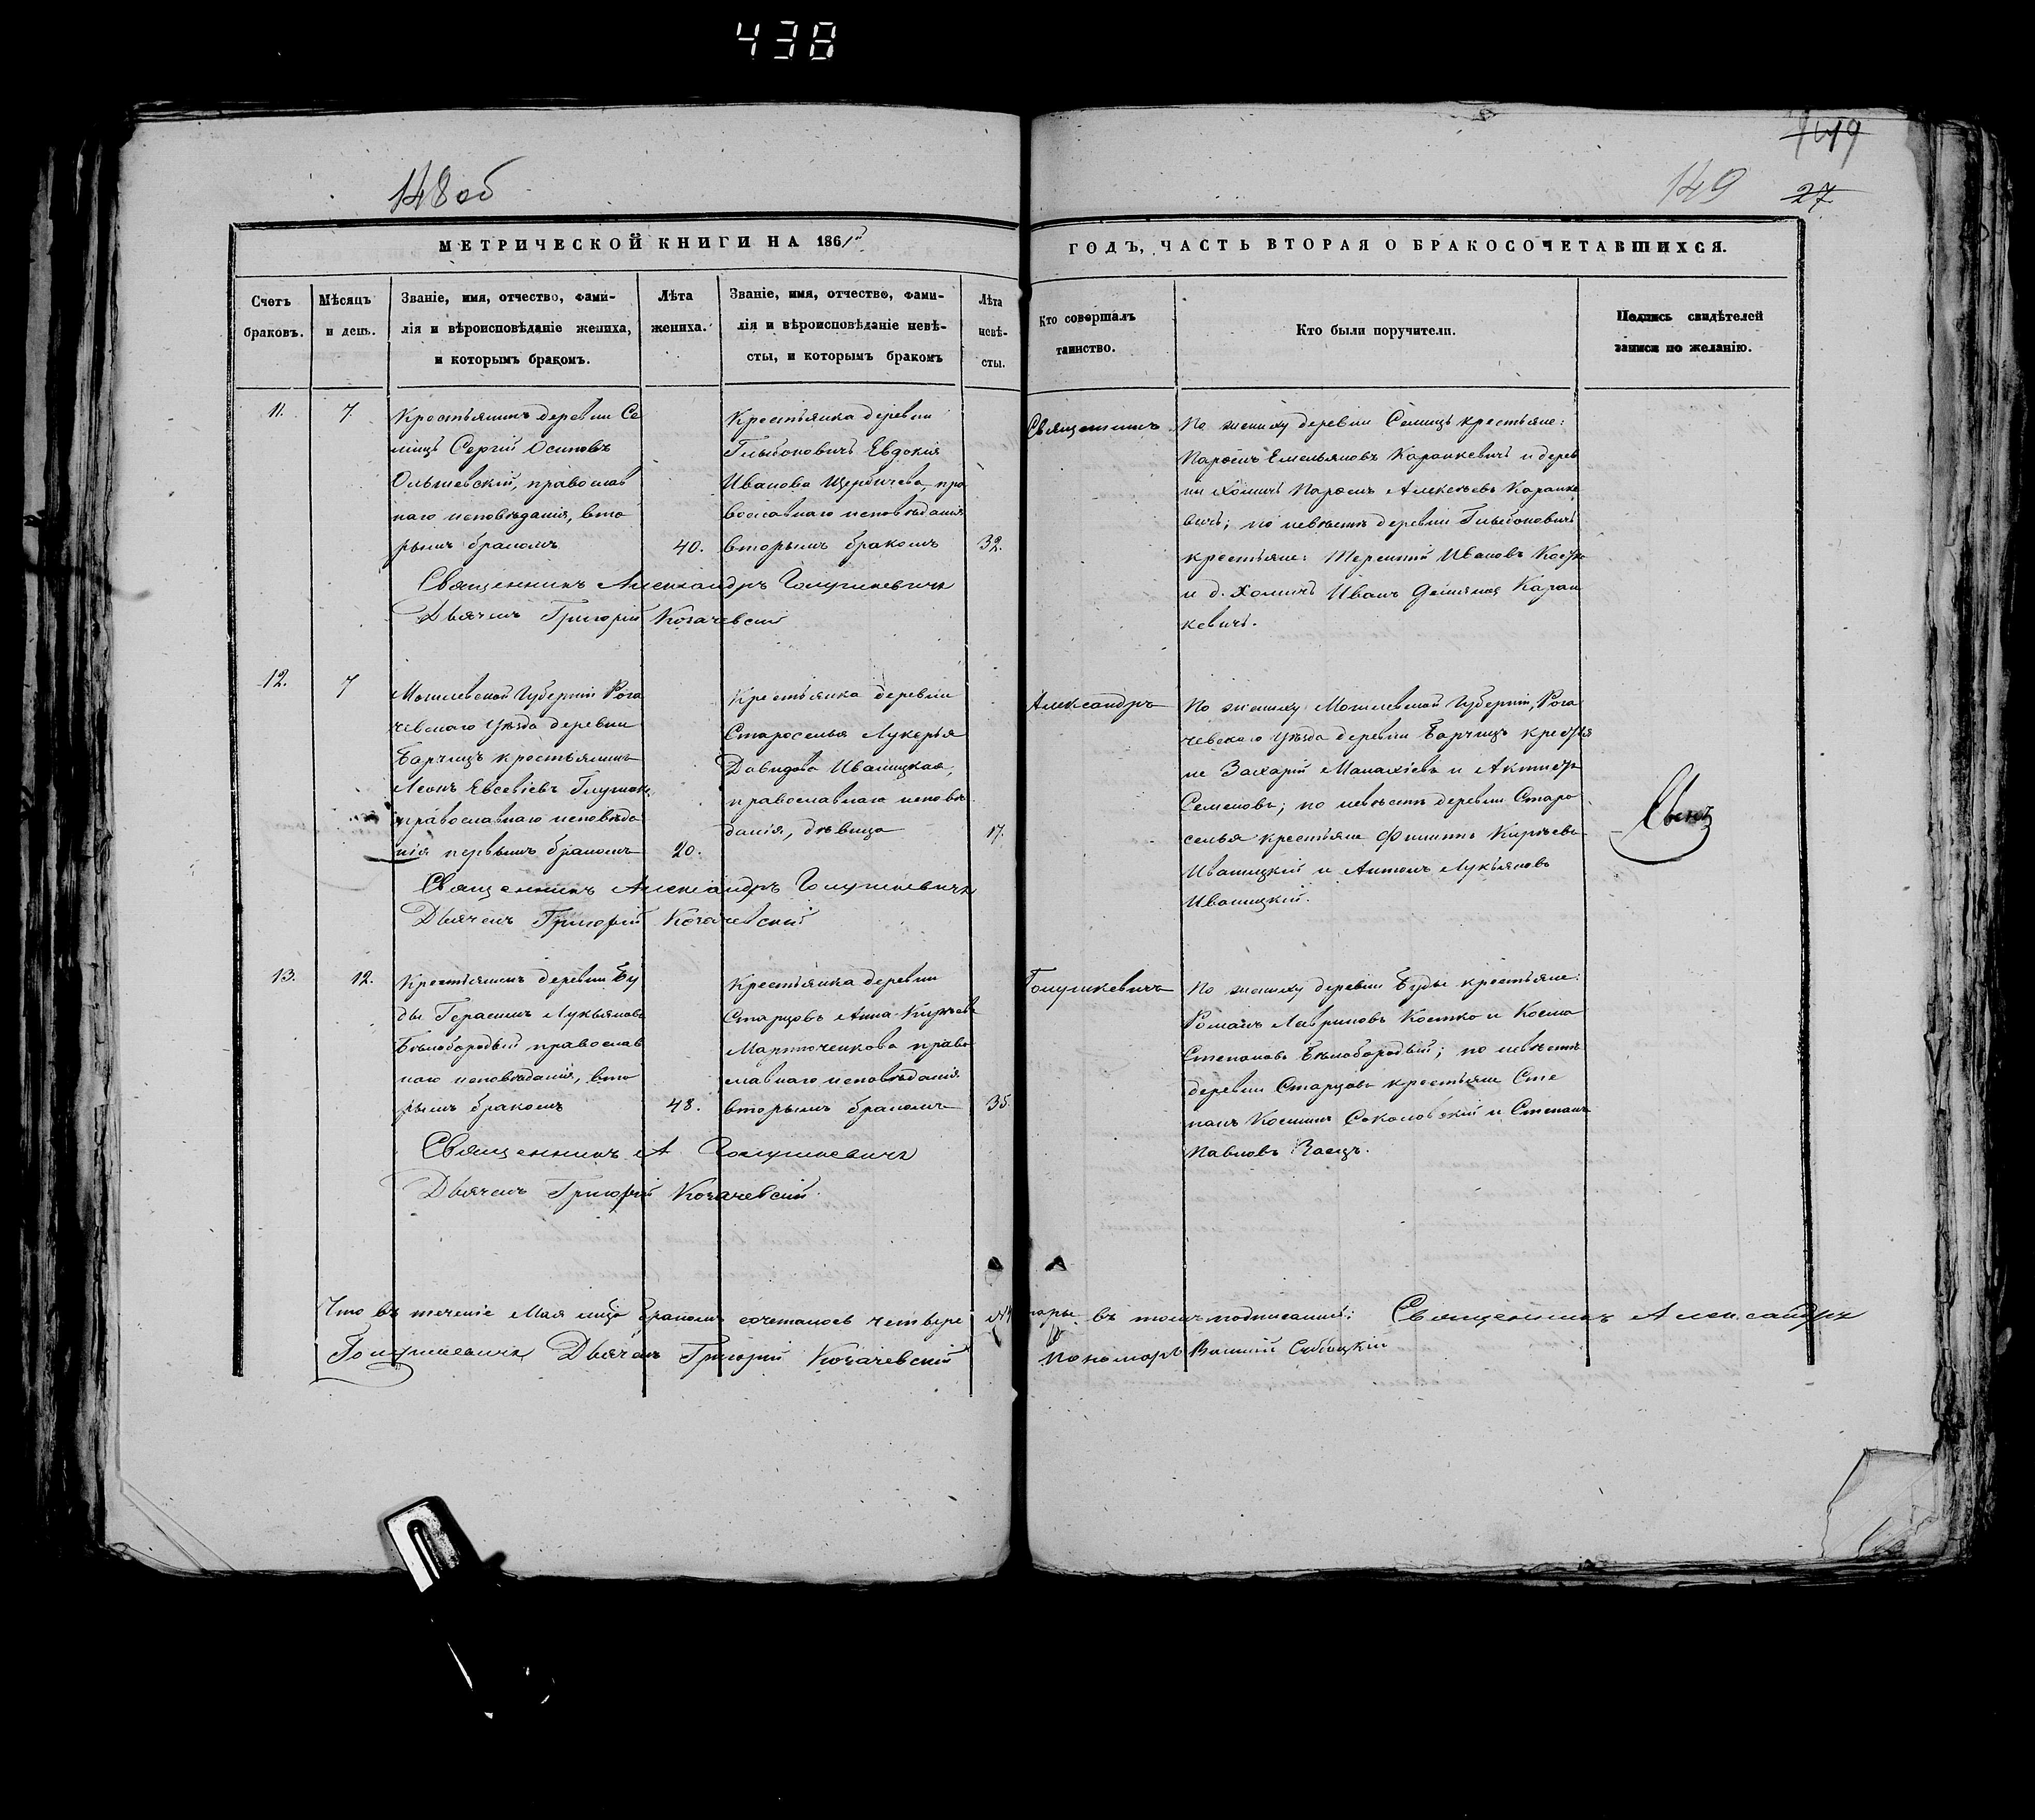 438
148 об
149
27
МЕТРИЧЕСКОЙ КНИГИ НА 1861й
ГОДЪ, ЧАСТЬ ВТОРАЯ О БРАКОСОЧЕТАВШИХСЯ.
Счетъ
браковъ.
Мѣсяцъ
и день.
Званіе, имя, отчество, фами-
лія и вѣроисповѣданіе жениха,
и которымъ бракомъ.
Лѣта
жениха.
Званіе, имя, отчество, фами-
лія и вѣроисповѣданіе невѣ-
сты, и которымъ бракомъ
Лѣта
невѣ-
сты.
Кто совершалъ
таинство.
Кто были поручители.
Подпись свидѣтелей
записи по желанію.
11.
7.
Крестьянинъ деревни Се
мицъ Сергій Осиповъ
Ольшевскій, православ
наго исповѣданія, вто
рымъ бракомъ
40.
Крестьянка деревни
Евдокія
Иванова Щербичева, пра
вославнаго исповѣданія
вторымъ бракомъ
32.
Священникъ
По жениху деревни Семицъ крестьяне:
Парѳенъ Емельяновъ Каранкевичъ и дерев
ни Холмичъ Парѳенъ Алексѣевъ Каранке
вичъ; по невѣстѣ деревни
крестьяне: Терентій Ивановъ
и д. Холмичъ Иванъ Каран
кевичъ.
Священникъ Александръ Голушкевичъ
Дьячекъ Григорій Когачевскій
12.
7
Могилевской Губерніи Рога
чевскаго Уѣзда деревни
Барчицъ крестьянинъ
Леонъ Евсевіевъ
православнаго исповѣда
нія первымъ бракомъ
20.
Крестьянка деревни
Староселья Лукерья
Давидова Иваницкая,
православнаго исповѣ
данія, дѣвица
17.
Александръ
По жениху Могилевской Губерніи, Рога
чевскаго Уѣзда деревни Барчицъ крестья
не Захарій Малахіевъ и
Семеновъ; по невѣстѣ деревни Старо
селья крестьяне Филиппъ Кирѣевъ
Иваницкій и Антонъ Лукьяновъ
Иваницкій.
Священникъ Александръ Голушкевичъ
Дьячекъ Григорій Когачевскій
13.
12.
Крестьянинъ деревни Бу
ды Герасимъ Лукьяновъ
Бѣлобородый православ
наго исповѣданія, вто
рымъ бракомъ
48.
Крестьянка деревни
Старцовъ Анна Кирѣева
Мартюченкова право
славнаго исповѣданія
вторымъ бракомъ
35.
Голушкевичъ
По жениху деревни Буды крестьяне:
Романъ Лавриновъ Костко и Косма
Степановъ Бѣлобородый; по невѣстѣ
деревни Старцовъ крестьяне Сте
панъ Косминъ Соколовскій и Степанъ
Павловъ Заецъ.
Священникъ А Голушкевичъ
Дьячекъ Григорій Когачевскій.
Что въ теченіе Мая мѣсца бракомъ сочеталось четыре пары въ томъ подписались: Священникъ Александръ
Голушкевичъ Дьячекъ Григорій Когачевскій Пономарь